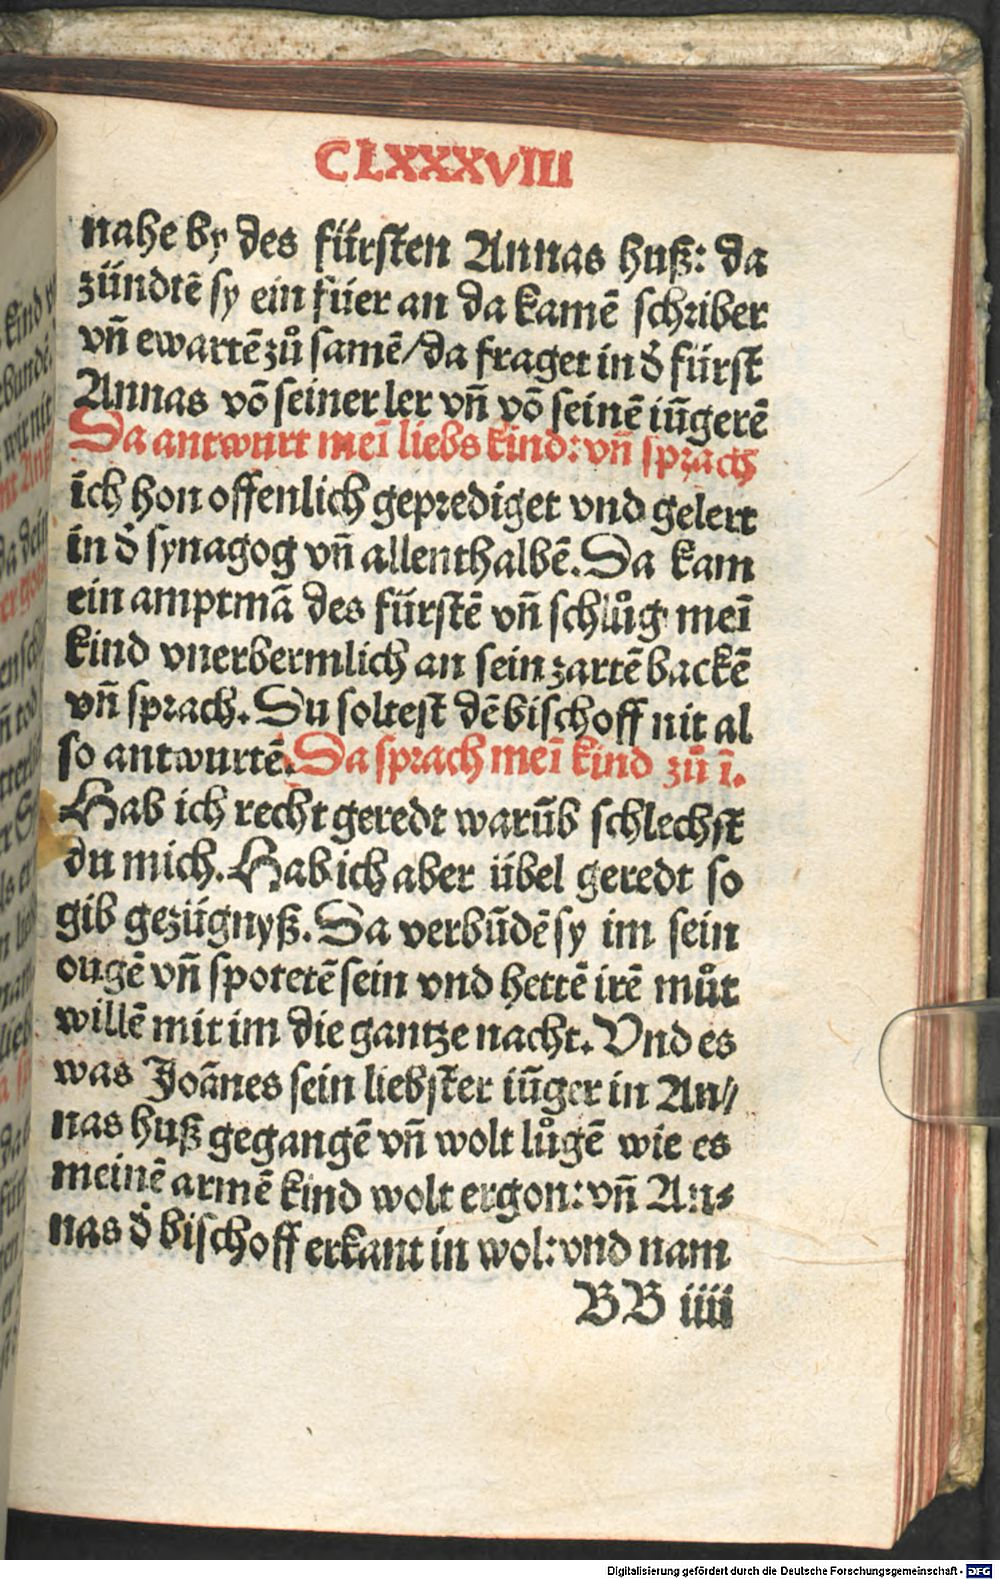 CLXXXVIII
nahe by des fürsten Annas huß: da
zündtē sy ein füer an da kamē schriber
vñ ewartē zů samē/da fraget in d̄ fürst
Annas vō seiner ler vñ vō seinē iūgerē
Da antwurt meī liebs kind: vñ sprach
ich hon offenlich geprediget vnd gelert
in d̄ synagog vñ allenthalbē. Da kam
ein amptmā des fürstē vñ schlůg meī
kind vnerbermlich an sein zartē backē
vñ sprach. Du soltest dē bischoff nit al
so antwurtē. Da sprach meī kind zů ī.
Hab ich recht geredt warūb schlechst
du mich. Hab ich aber übel geredt so
gib gezügnyß. Da verbūdē sy im sein
ougē vñ spotetē sein vnd hettē irē můt
willē mit im die gantze nacht. Vnd es
was Joānes sein liebster iūger in An//
nas huß gegangē vñ wolt lůgē wie es
meinē armē kind wolt ergon: vñ An⸗
nas d̄ bischoff erkant in wol: vnd nam
BB iiii
Digitalisierung gefördert durch die Deutsche Forschungsgemeinschaft - DFG